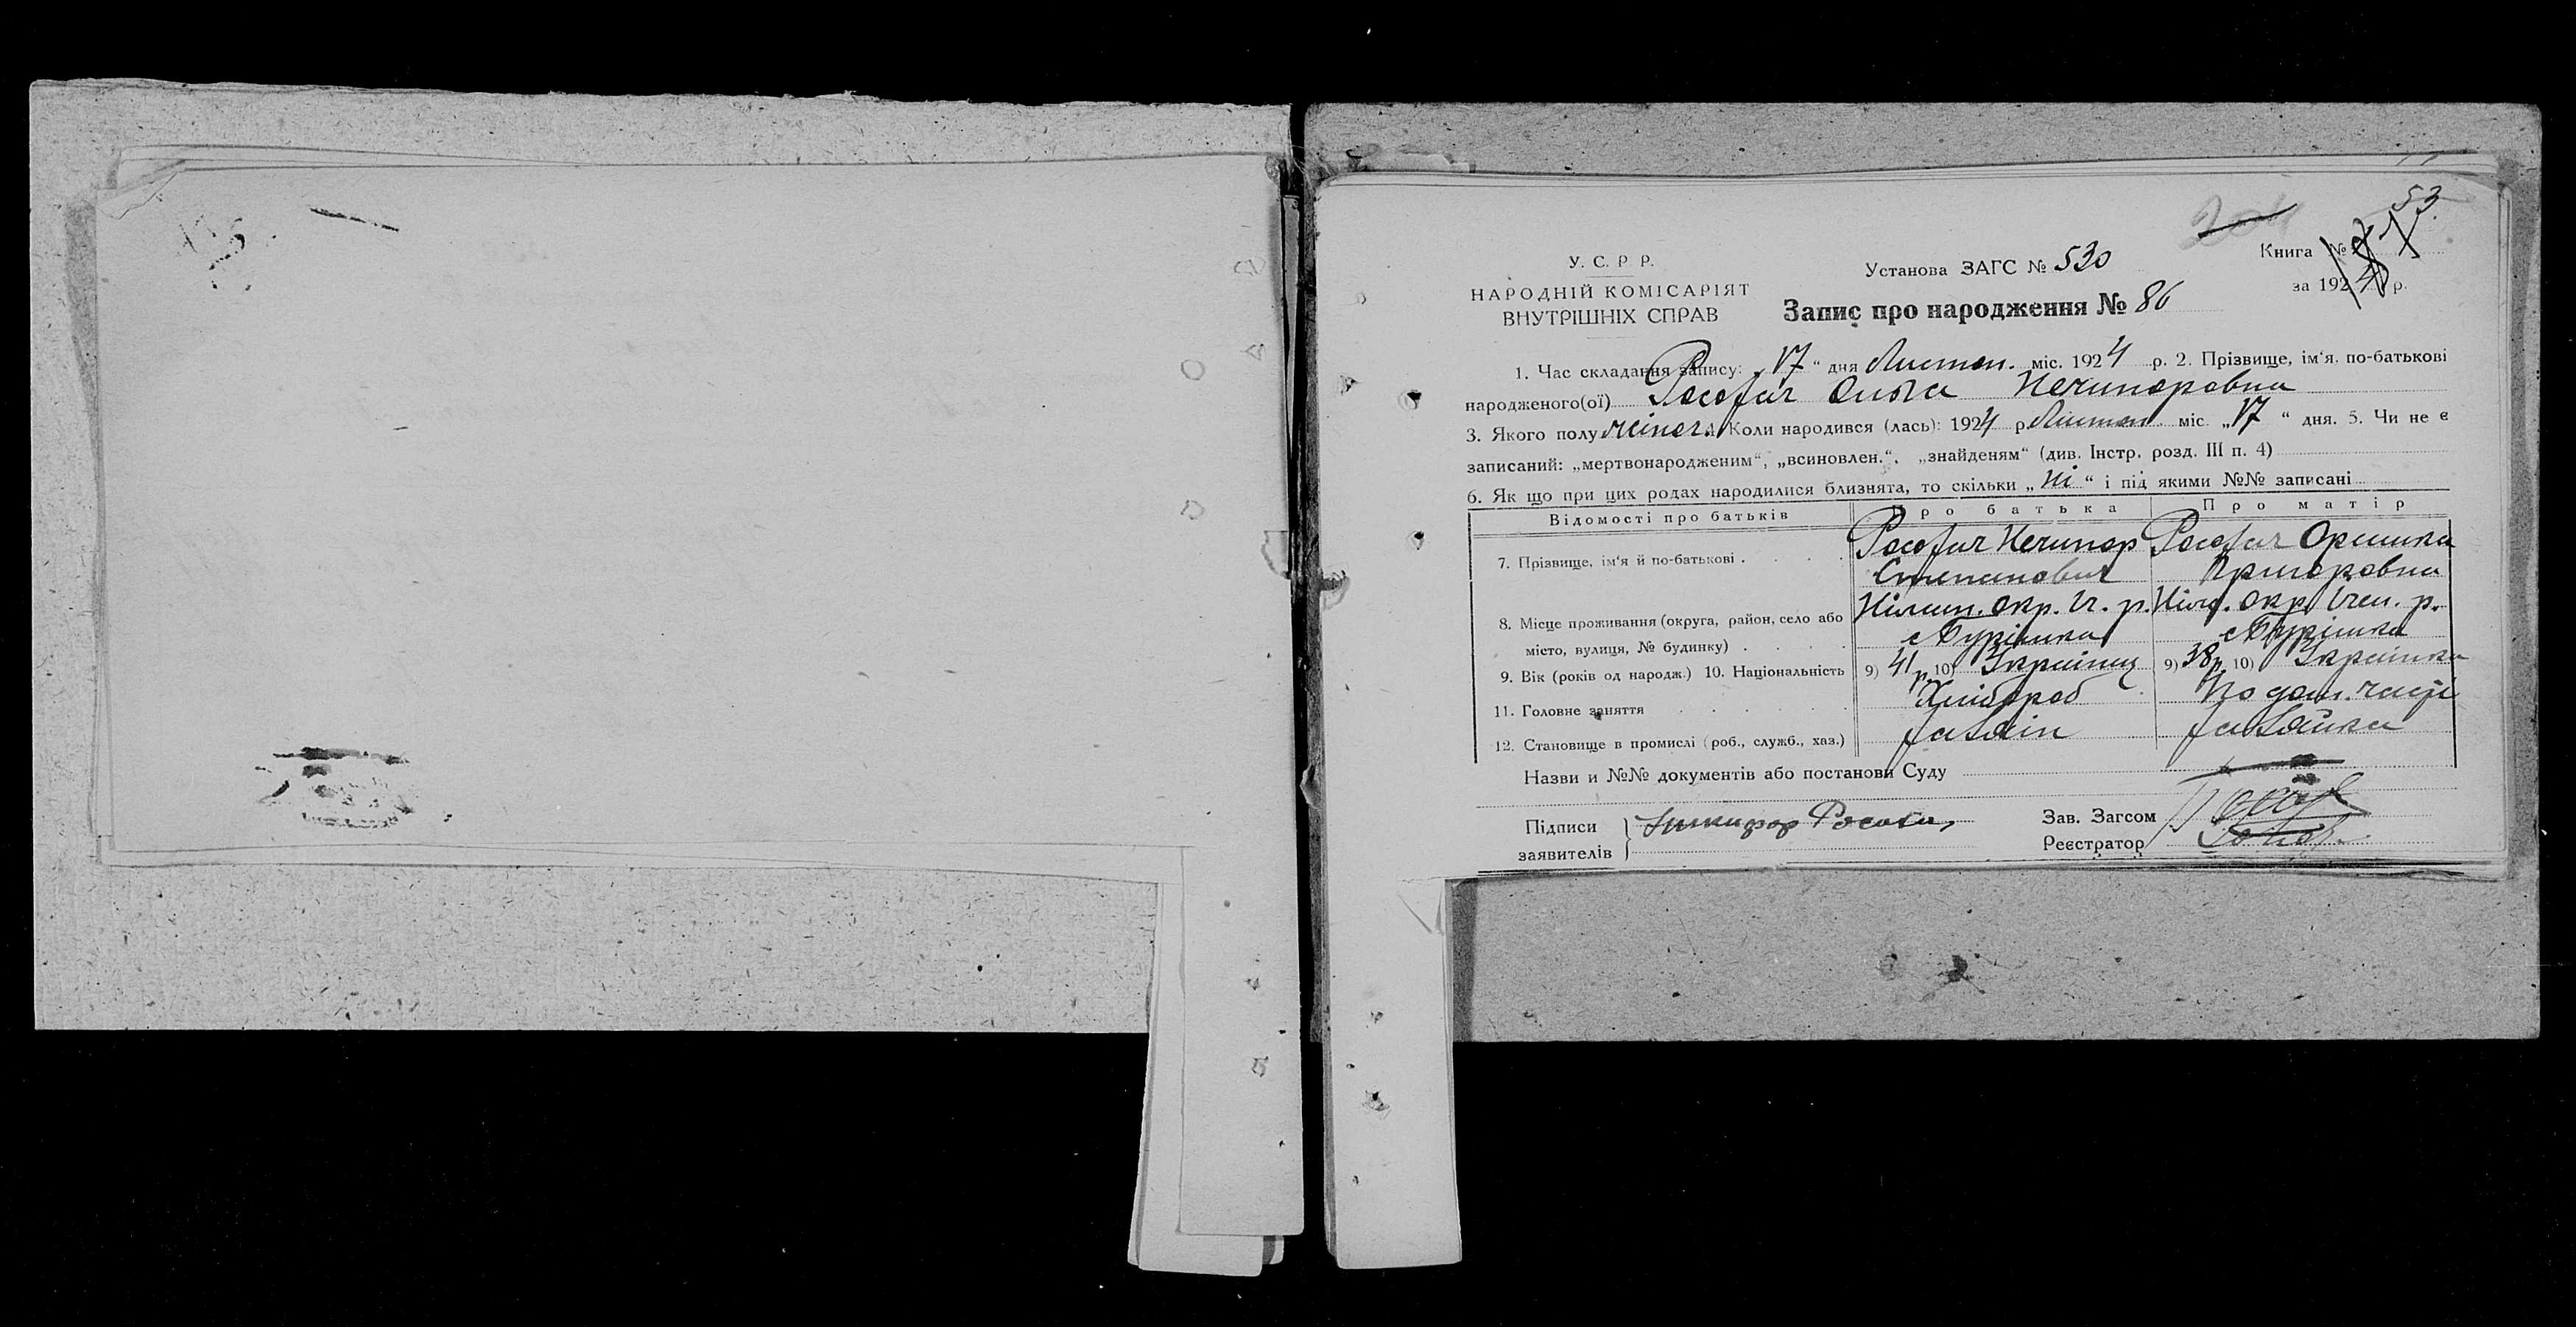 53
204
У. С. Р Р.
НАРОДНІЙ КОМІСАРІЯТ
ВНУТРІШНІХ СПРАВ
Установа ЗАГС № 530
Книга №
за 1924 р.
Запис про народження № 86
1. Час складання запису: „17“ дня Листоп. міс. 1924 р. 2. Прізвище, ім'я, по-батькові
народженого(ої) Ольга Нечипоровна
3. Якого полу жіноч. 4. Коли народився (лась): 1924 р. Листоп. міс. „17“ дня. 5. Чи не є
записаний: „мертвонародженим“, „всиновлен.“, „знайденям“ (див. Інстр. розд. III п. 4)
6. Як що при цих родах народилися близнята, то скільки „Ні“ і під якими №№ записані
Відомості про батьків Про батька Про матір
7. Прізвище, ім'я й по-батькові Нечипор Оришка
Степанович Григоровна
8. Місце проживання (округа, район, село або Ніжин. окр. Іч. р. Ніжи. окр. Ічен. р.
місто, вулиця, № будинку) с Бурімка с Бурімка
9. Вік (років од народж.) 10. Національність 9) 41 р. 10) Українец 9) 38 р. 10) Українка
11. Головне заняття Хлібороб По дом. части
12. Становище в промислі (роб., служб., хаз.) хазяїн хазяйка
Назви и №№ документів або постанови Суду
Підписи
заявителів
Зав. Загсом
Реєстратор